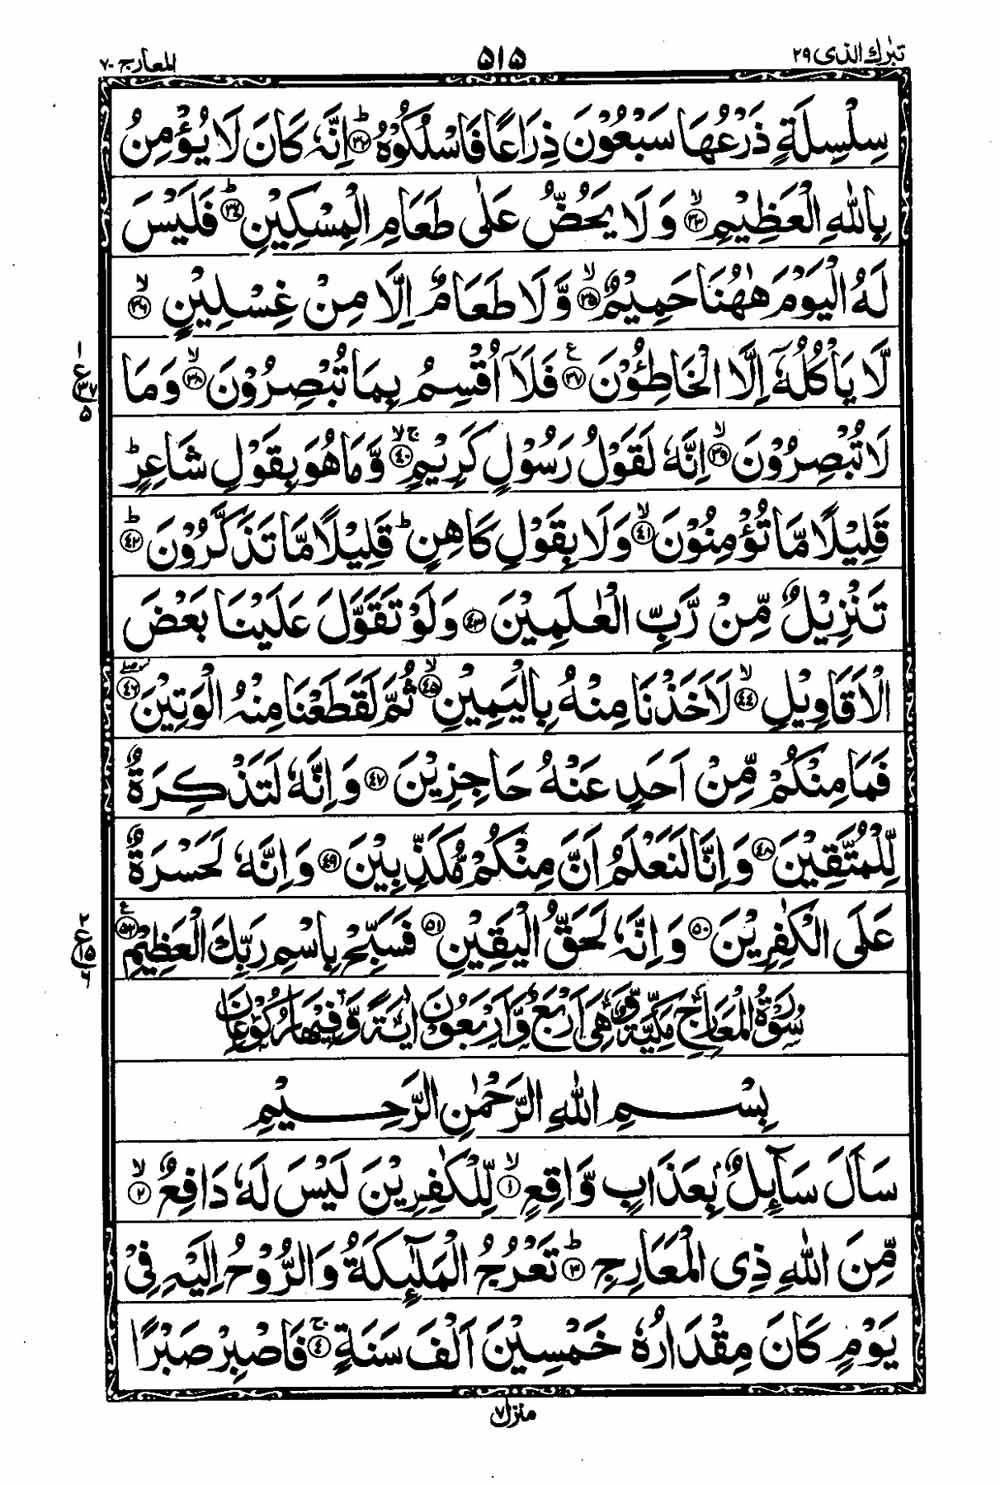 تبرك الذی ٢٩ ۵١۵ المعارج ٧٠
سِلْسِلَةٍ ذَرْعُهَا سَبْعُوْنَ ذِرَاعًا فَاسْلُكُوْهُ ؕ‏﴿۳۲﴾ اِنَّهٗ كَانَ لَا يُؤْمِنُ
بِاللّٰهِ الْعَظِيْمِ ۙ‏﴿۳۳﴾ وَلَا يَحُضُّ عَلٰى طَعَامِ الْمِسْكِيْنِ ؕ‏﴿۳۴﴾ فَلَيْسَ
لَهُ الْيَوْمَ هٰهُنَا حَمِيْمٌ ۙ‏﴿۳۵﴾ وَّلَا طَعَامٌ اِلَّا مِنْ غِسْلِيْنٍ ۙ‏﴿۳۶﴾
لَّا يَاْكُلُهٗۤ اِلَّا الْخَاطِــُٔوْنَ ﴿۳۷﴾ ع فَلَاۤ اُقْسِمُ بِمَا تُبْصِرُوْنَ ۙ‏﴿۳۸﴾ وَمَا
١ ع ٣٧ ۵
لَا تُبْصِرُوْنَ ۙ‏﴿۳۹﴾ اِنَّهٗ لَقَوْلُ رَسُوْلٍ كَرِيْمٍ ۚ ۙ‏﴿۴۰﴾ وَّمَا هُوَ بِقَوْلِ شَاعِرٍ ؕ
قَلِيْلًا مَّا تُؤْمِنُوْنَ ۙ‏﴿۴۱﴾ وَلَا بِقَوْلِ كَاهِنٍ ؕ قَلِيْلًا مَّا تَذَكَّرُوْنَ ؕ‏﴿۴۲﴾
تَنْزِيْلٌ مِّنْ رَّبِّ الْعٰلَمِيْنَ ﴿۴۳﴾ وَلَوْ تَقَوَّلَ عَلَيْنَا بَعْضَ
الْاَقَاوِيْلِ ۙ‏﴿۴۴﴾ لَاَخَذْنَا مِنْهُ بِالْيَمِيْنِ ۙ‏﴿۴۵﴾ ثُمَّ لَقَطَعْنَا مِنْهُ الْوَتِيْنَ ۖ‏﴿۴۶﴾
فَمَا مِنْكُمْ مِّنْ اَحَدٍ عَنْهُ حَاجِزِيْنَ ﴿۴۷﴾ وَاِنَّهٗ لَتَذْكِرَةٌ
لِّلْمُتَّقِيْنَ ﴿۴۸﴾ وَاِنَّا لَنَعْلَمُ اَنَّ مِنْكُمْ مُّكَذِّبِيْنَ ﴿۴۹﴾ وَاِنَّهٗ لَحَسْرَةٌ
عَلَى الْكٰفِرِيْنَ ﴿۵۰﴾ وَاِنَّهٗ لَحَقُّ الْيَقِيْنِ ﴿۵۱﴾ فَسَبِّحْ بِاسْمِ رَبِّكَ الْعَظِيْمِ ﴿۵۲﴾ ع
٢ ع ١۵ ٦
سُوْرَةُ الْمَعَارِجِ مَكِّيَّةٌ وَّهِىَ اَرْبَعٌ وَّاَرْبَعُوْنَ اٰيَةً وَّفِيْهَا رُكُوْعَانِ
بِسْمِ اللّٰهِ الرَّحْمٰنِ الرَّحِيْمِ
سَاَلَ سَآئِلٌۢ بِعَذَابٍ وَّاقِعٍ ۙ‏﴿۱﴾ لِّلْكٰفِرِيْنَ لَيْسَ لَهٗ دَافِعٌ ۙ‏﴿۲﴾
مِّنَ اللّٰهِ ذِى الْمَعَارِجِ ؕ‏﴿۳﴾ تَعْرُجُ الْمَلٰٓئِكَةُ وَالرُّوْحُ اِلَيْهِ فِىْ
يَوْمٍ كَانَ مِقْدَارُهٗ خَمْسِيْنَ اَلْفَ سَنَةٍ ۚ‏﴿۴﴾ فَاصْبِرْ صَبْرًا
منزل ٧